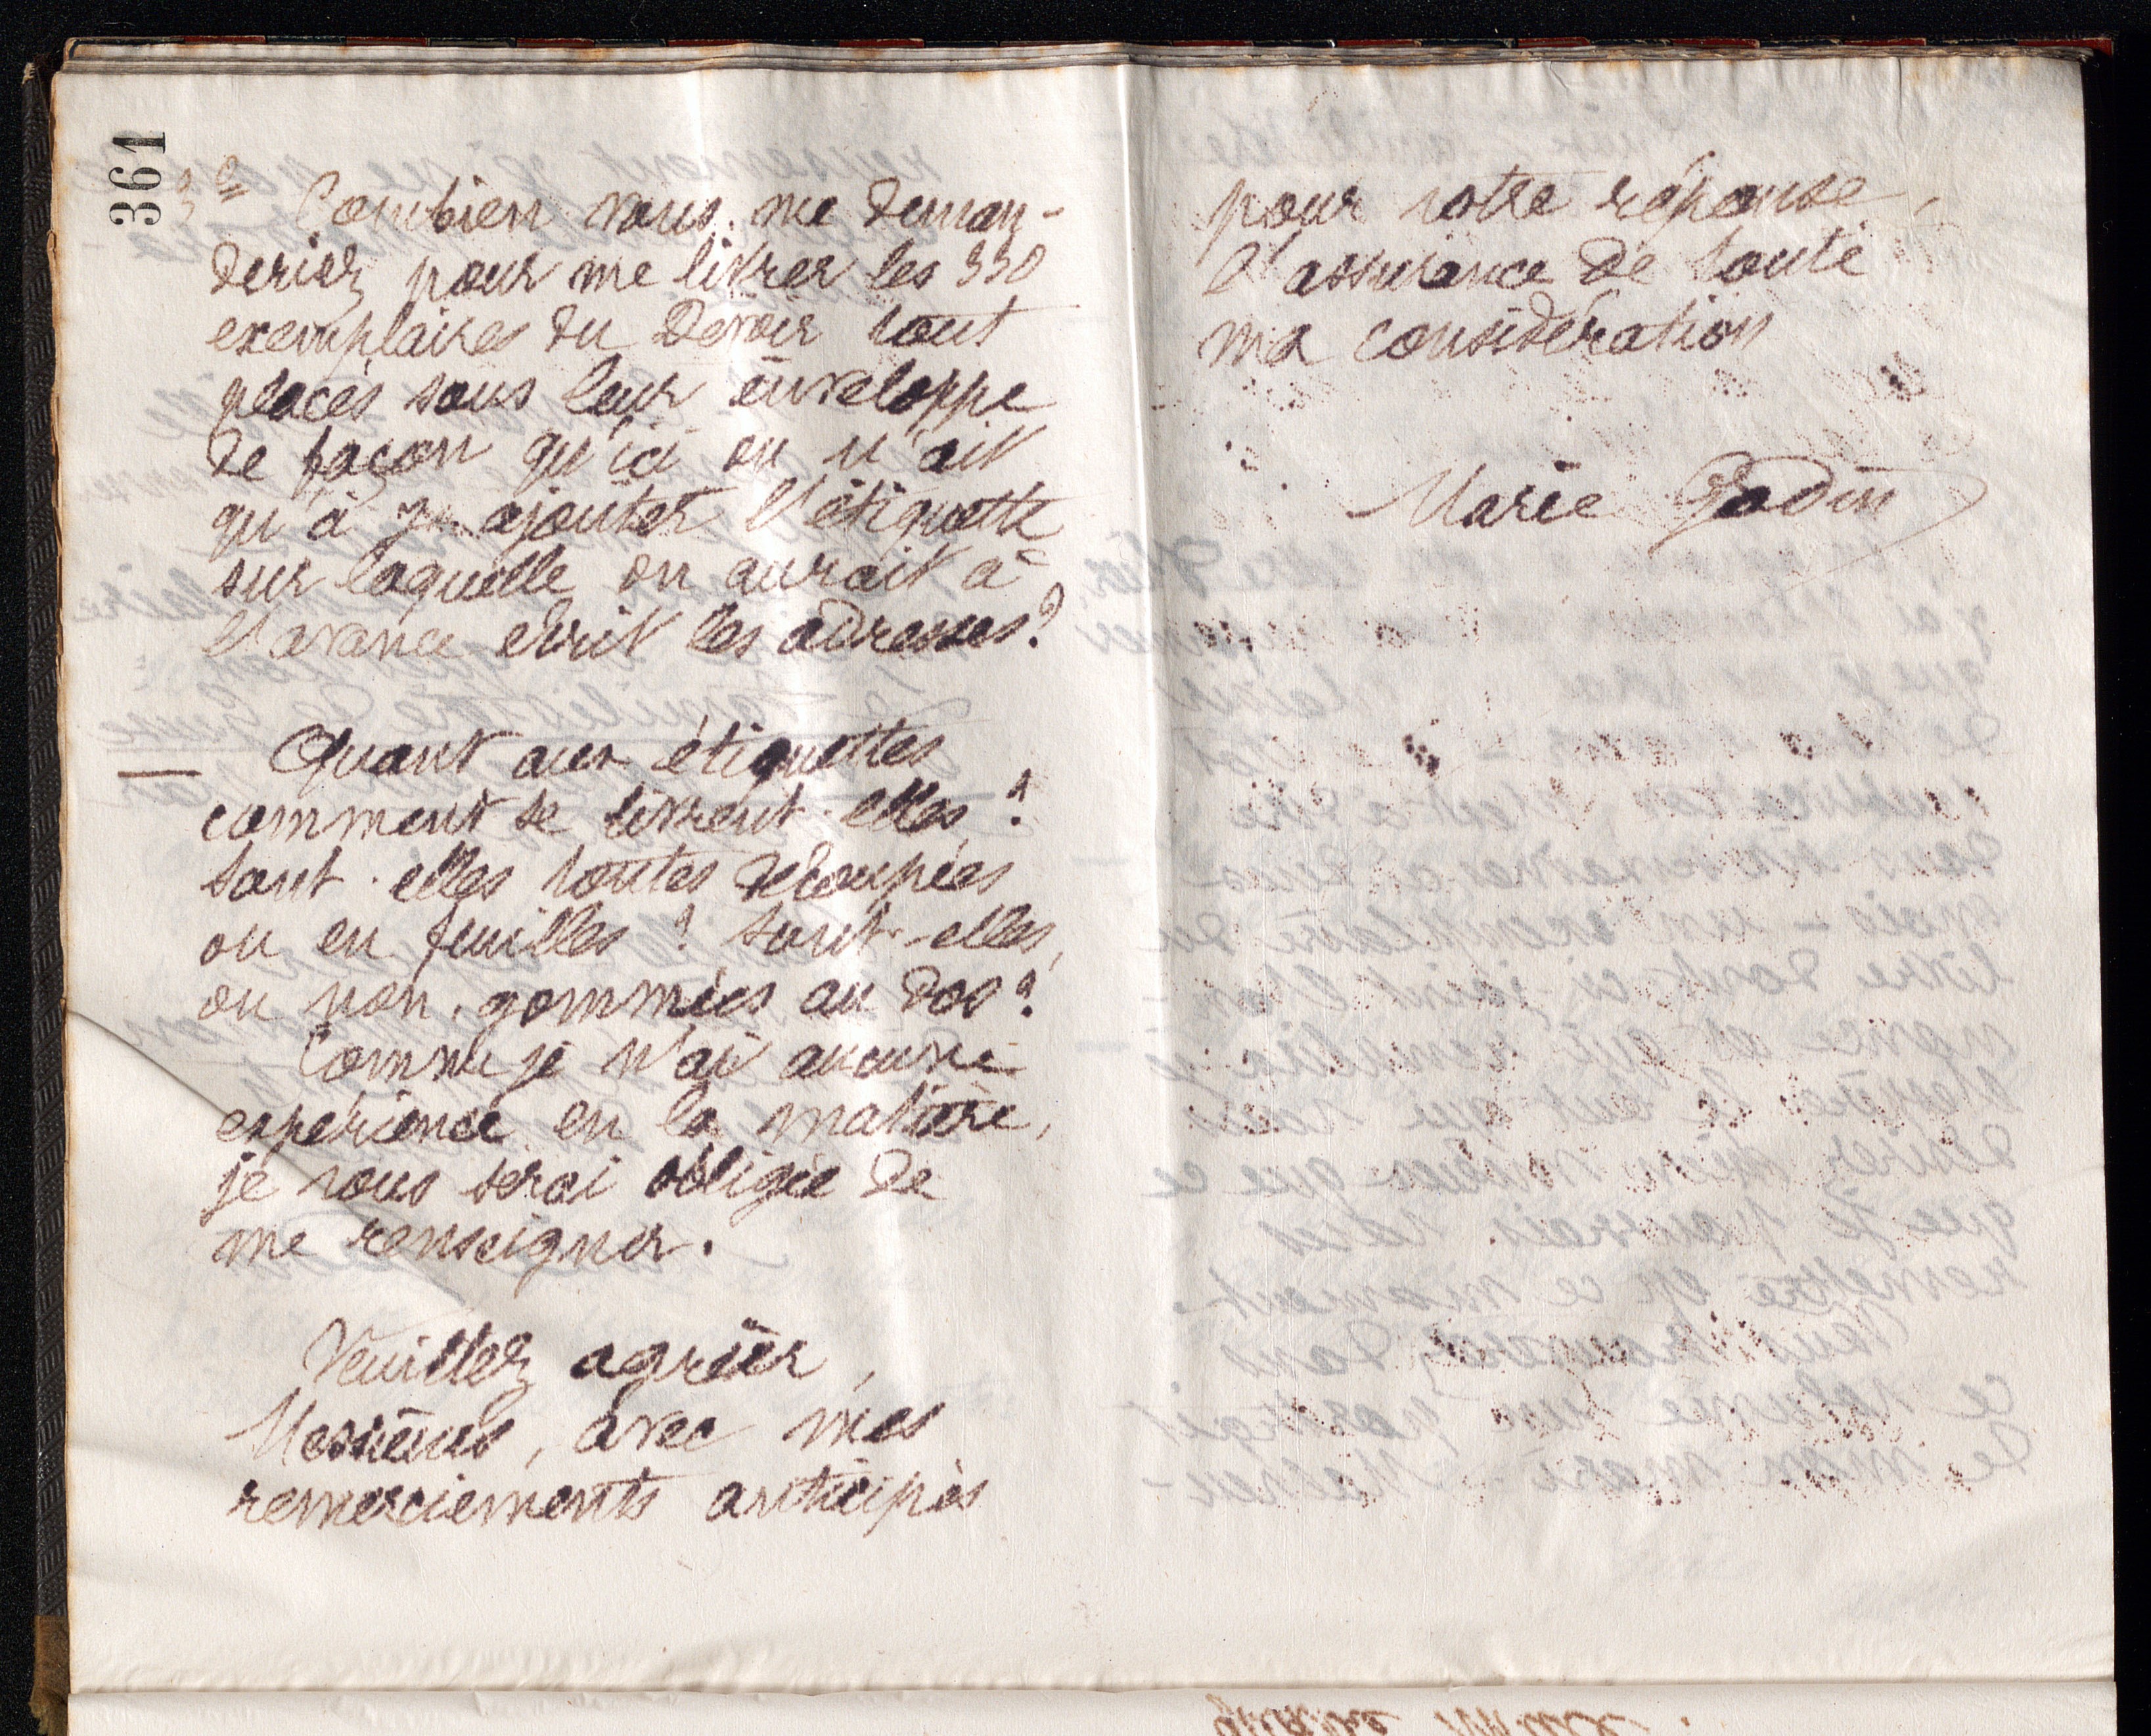 361
3e Combien vous me deman-
deriez pour me livrer les 330
exemplaires du Devoir tout
placés sous leur enveloppe
de façon qu'ici on n'ait
qu'à y ajouter l'étiquette
sur laquelle on aurait à
l'avance écrit les adresses?
— Quant aux étiquettes
comment se livrent-elles?
Sont-elles toutes découpées
ou en feuilles? Sont-elles,
ou non, gommées au dos?
Comme je n'ai aucune
expérience en la matière,
je vous serai obligée de
me renseigner.
Veuillez agréer,
Messieurs, avec mes
remerciements anticipés
pour votre réponse,
l'assurance de toute
ma considération
Marie Godin